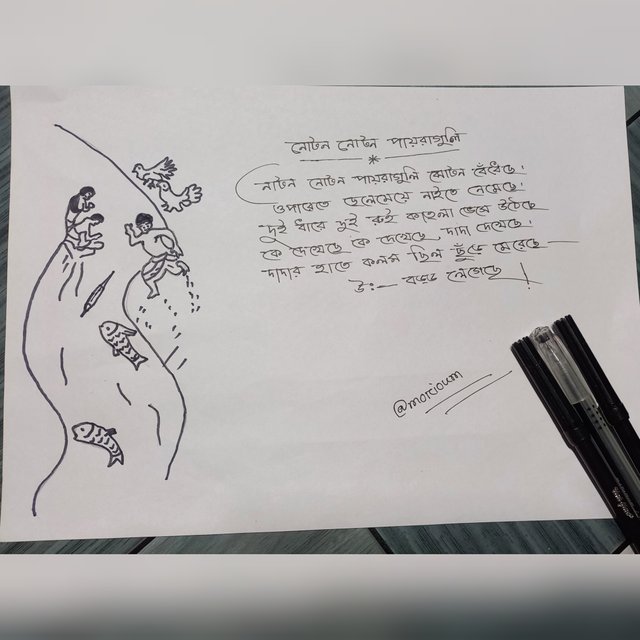 নোটন নোটন পায়রাগুলি
নোটন নোটন পায়রাগুলি ঝোটন বেঁধেছে।
ওপারেতে ছেলেমেয়ে নাইতে নেমেছে।
দুই ধারে দুই রুই কাতলা ভেসে উঠেছে
কে দেখেছে কে দেখেছে, দাদা দেখেছে।
দাদার হাতে কলম ছিল ছুঁড়ে মেরেছে—
উঃ— বড্ড লেগেছে!
@marjoum